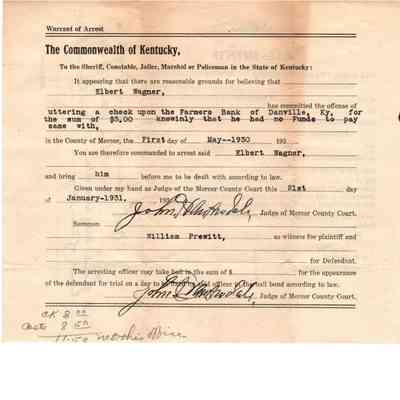 Warrant of Arrest
The Commonwealth of Kentucky,
To the Sheriff, Constable, Jailer, Marshal or Policeman in the State of Kentucky:
It appearing that there are reasonable grounds for believing that
Elbert Wagner,
has committed the offense of
uttering a check upon the Farmers Bank of Danville, Ky, for
the sum of $5,00 knowinly that he had no Funds to pay
same with,
in the County of Mercer, the First day of May--1930 193
You are therefore commanded to arrest said Elbert Wagner,
and bring him before me to be dealt with according to law.
Given under my hand as Judge of the Mercer County Court this 21st day
of January-1931, 193 Judge of Mercer County Court.
Summon
William Prewitt, as witness for plaintiff and
for Defendant.
The arresting officer may take bail in the sum of $ for the appearance
of the defendant for trial on a day to be officer in the bail bond according to law.
Judge of Mercer County Court.
CK 5 00
Costs 8 50